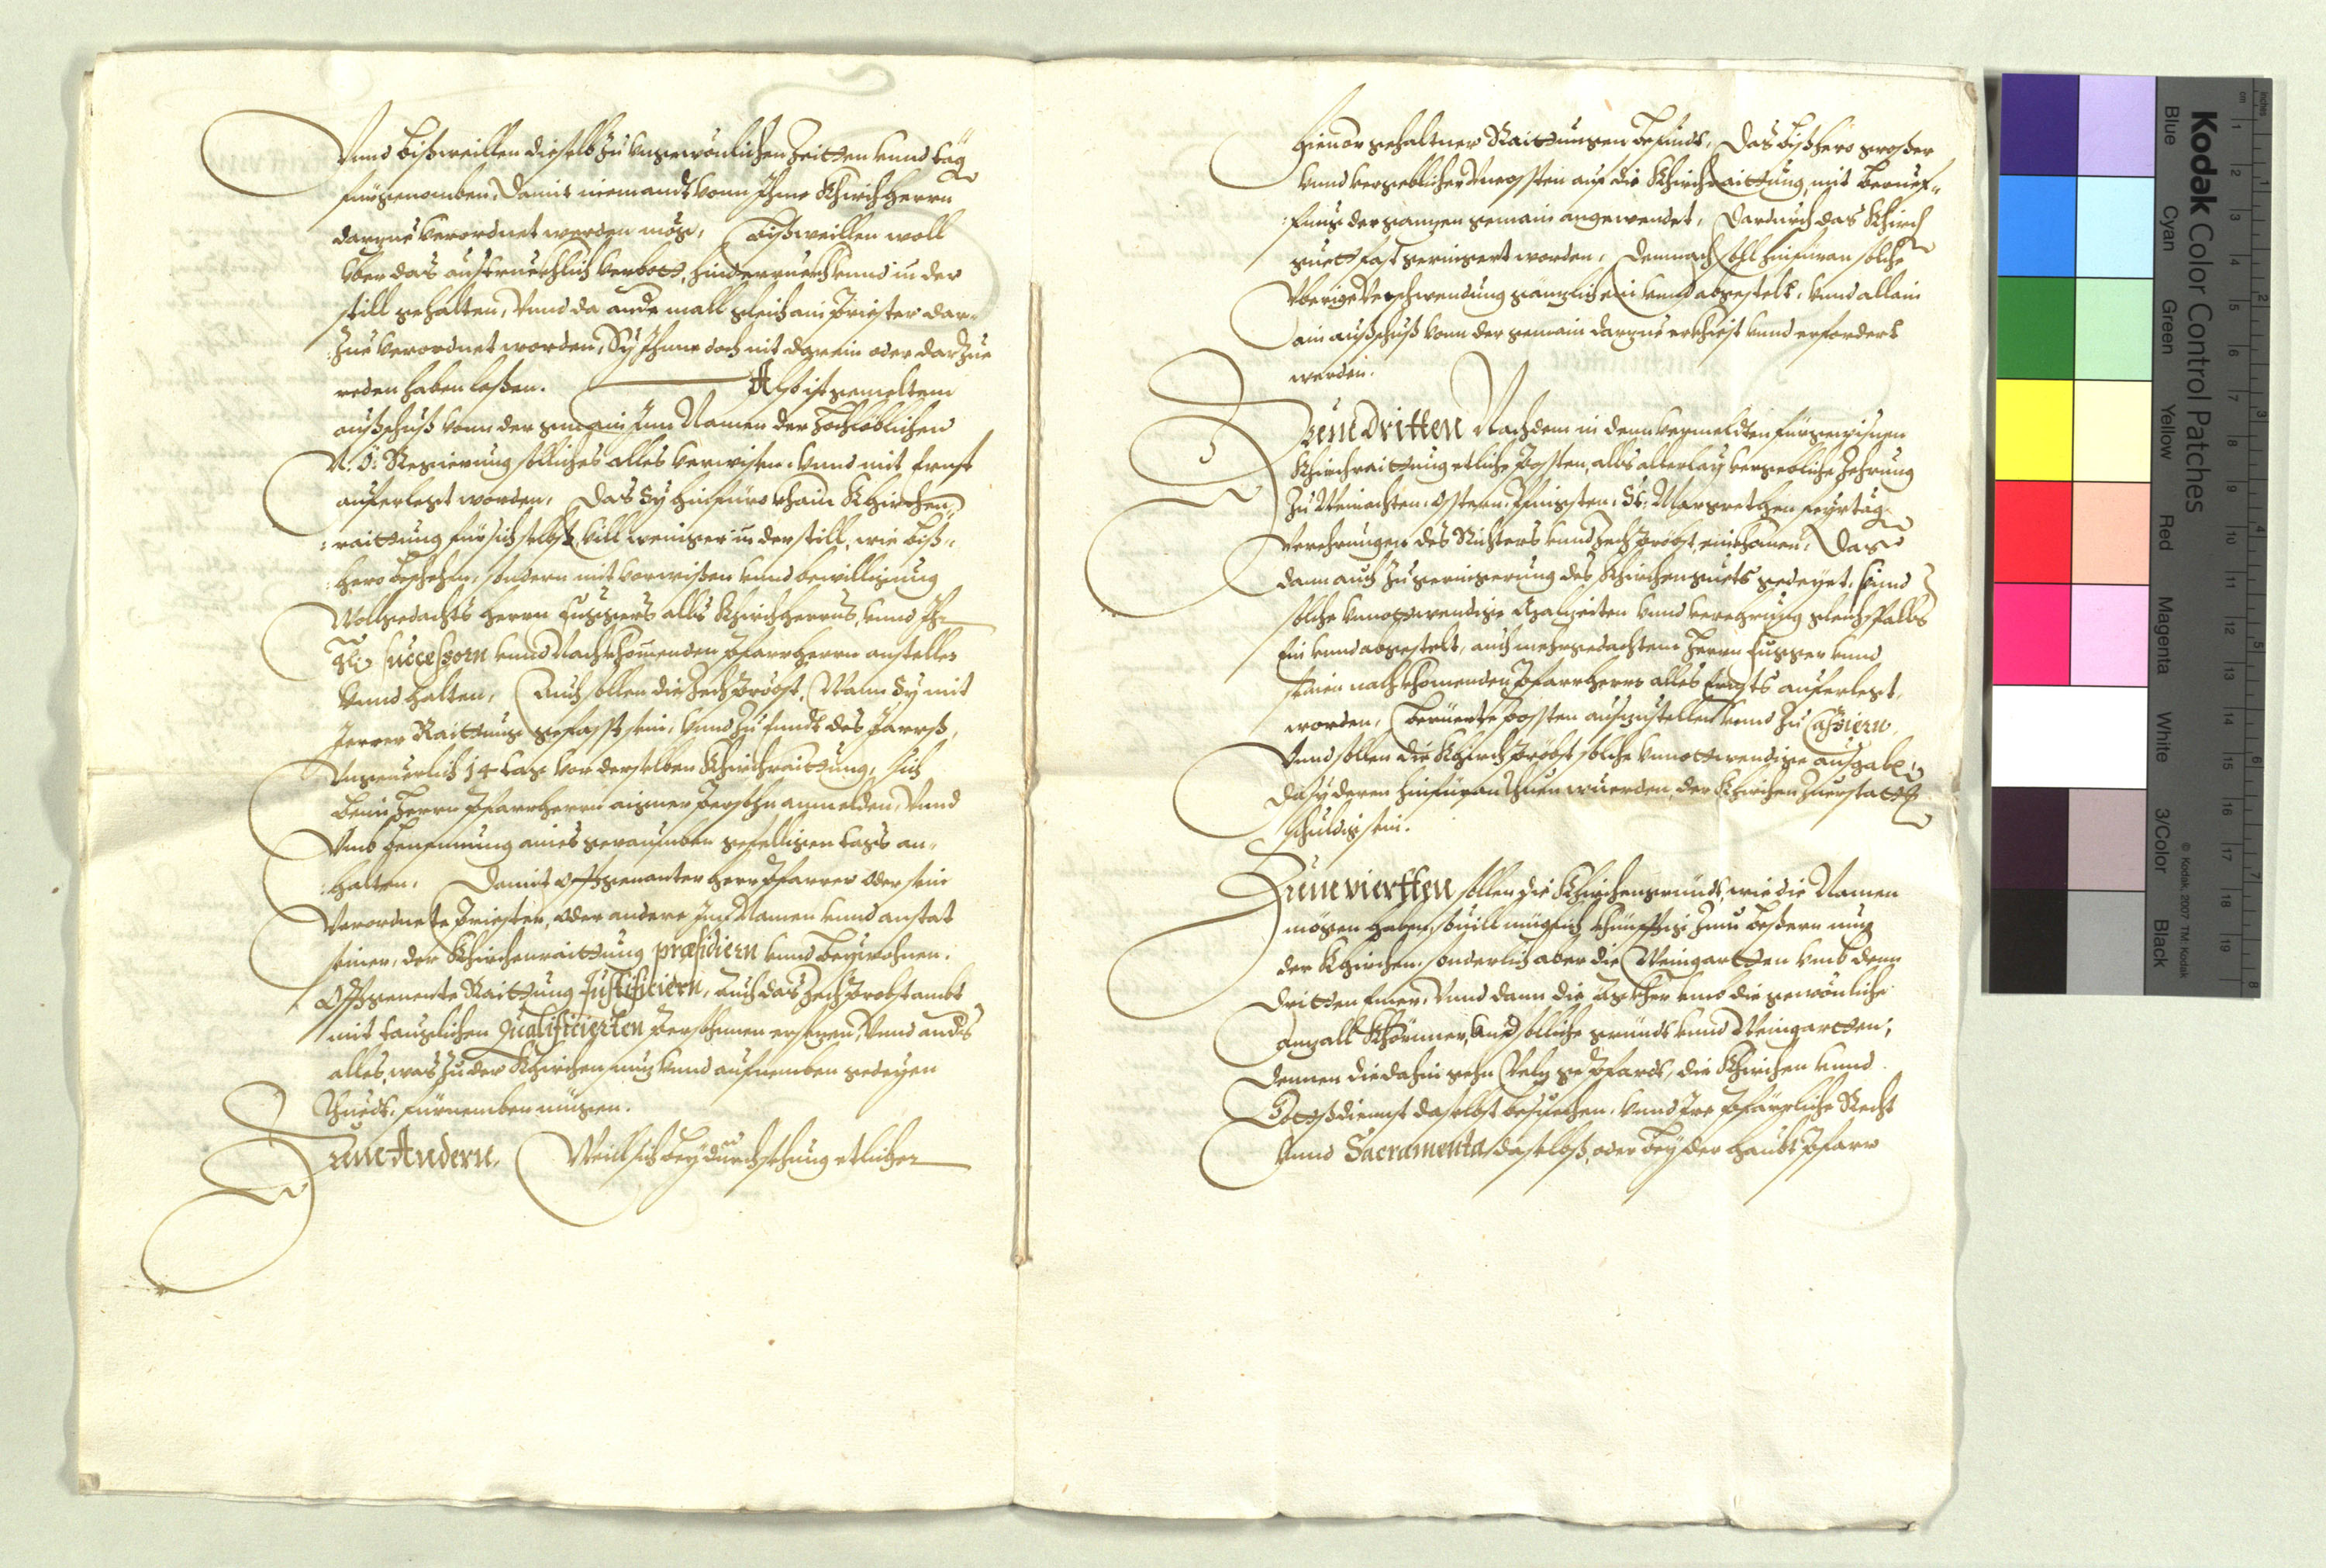 Vnnd bißweillen dieselb zu vngewönlichen Zeitten vnnd täg
fürgenomben, damit niemandt vonn Ihme Khirchherrn
darzue verordnet werden mög, Bißweillen woll
vber das austruckhlich verbott, hinderruckh vnnd in der
still gehalten, Vnnd da ainds mall gleich ain Priester dar-
:zue verordnet worden, Sy Ihnne doch nit darein oder darzue
reden haben laßen. Also ist gemeltem
außschuß vonn der gmain Inn Namen der Hochlöblichen
N: Ö: Regierung solliches alles verwisen, vnnd mit ernst
auferlegt worden, Das Sy hinfüro khain Khirchen-
:raittung für sich selbst, vill weniger in der still, wie biß-
:hero beschehen, sondern mit vorwißen vnnd bewilligung
Wollgedachts herrn Fuggers alls Khirchherrns, vnnd Ih-
Successorn vnnd Nachkhomenden Pfarrherrn anstellen
vnnd halten, Auch sollen die Zechpröbst, Wann Sy mit
Jerer Raittung gefasst sein, vnnd zu enndt des Jarrß,
Vngeuerlich 14 tag vor derselben Khirchraittung, sich
beim Herrn Pfarrherrn aigner Persohn anmelden, Vnnd
Vmb benennung aines geraumben gefelligen tags an-
:halten. Damit offtgenanter herr Pfarrer oder seine
Verordnete Priester, oder andere Inn Namen vnnd anstat
seiner, der Khirchenraittung præsidiern vnnd beywohnen.
Offtgenente Raittung Justificiern, Auch das Zechprobstambt
mit tauglichen Qualificierten Persohnen ersezen, Vnnd anders
alles, was zu der Khirchen nuz vnnd aufnemben gedeyen
thuedt, fürnemben mügen.
Zum Andern, Weill sich bey durchsehung etlicher
hieuor gehaltner Raittungen befindt, Das bißhero großer
vnnd vergeblicher Vncossten auf die Khirchraittung, mit beruef-
:fung der ganzen gemain angewendet, Dardurch das Khirch
guett fast geringert worden, Demnach soll hinfüran solche
Vberige Verschwendung gänzlich ein vnnd abgestelt, vnnd allain
ain außschuß vonn der gemain darzue erkhiest vnnd erfordert
werden.
Zum Dritten Nachdem in denn vermeldten fürgewisnen
Khirchraittung etliche Possten, alls allerlay vergebliche Zehrung
Zu Weinachten, Ostern, Pfingsten, St: Margrethen feyrtäg
Verehrungen des Richters vnnd Zechpröbst einkhomen, Das
dann auch zu geringerung des Khirchenguets gedeyet, Sinnd
solche vnnottwendige Malzeiten vnnd verehrung gleichsfalls
Ein vnnd abgestelt, auch mehrgedachtem Herrn Fugger vnnd
seinen nachkhomenden Pfarrherrn alles Ernsts auferlegt,
worden, Berüerte Possten aufzustellen vnnd zu Cassiern,
Vnnd sollen die Khirchpröbst solche vnnottwendige außgaben
da sy deren hinfüran thuen wuerden, der Khirchen zuerstatten
schuldig sein.
Zum viertten sollen die Khirchengründt, wie die Namen
mögen haben, souill müglich khünfftig zum bessern nuz
der Khirchen, sonderlich aber die Weingartten vmb denn
dritten Emer, Vnnd dann die Äckher vmb die gewönliche
Anzall Khörnner, Auch solliche gründt vnnd Weingartten,
dennen die dahin gehn Pfarrt, die Khirchen vnnd
Gottsdienst daselbst besuechen, vnnd Ire Pfärrliche Recht
vnnd Sacramenta daselbst, oder bey der haubt Pfarr
Kodak Color Control Patches
Blue Cyan Green Yellow Red Magenta White 3/Color Black
© Kodak, 2007 TM: Kodak